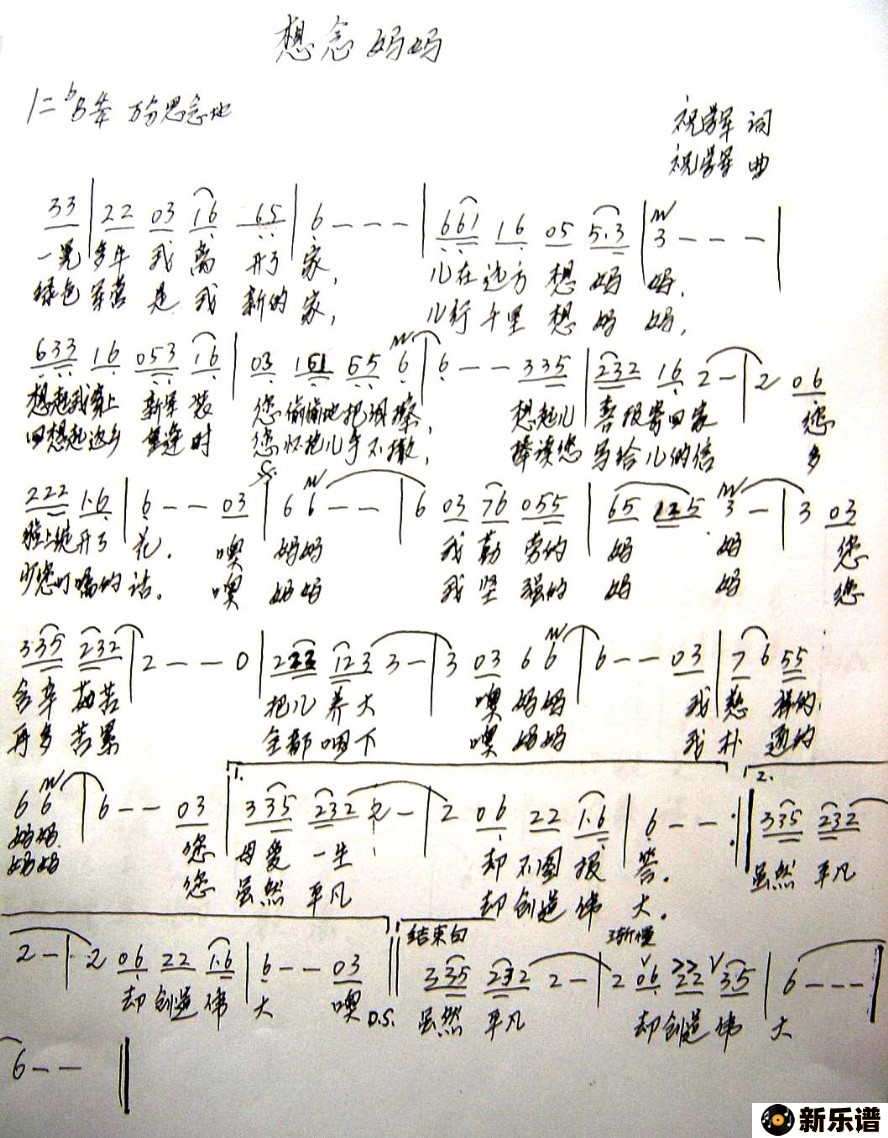 想念妈妈
1=♭B 4/4 万分思念地
祝学军 词
祝学军 曲
33 | 22 03 16 65 | 6 - - - | 661 16 05 5.3 | 3 - - - |
一晃 多年 我 离 开了 家, 儿在边方 想 妈 妈.
绿色 军营 是 我 新的 家, 儿行千里 想 妈 妈,
633 16 053 16 | 03 161 65 6 | 6 - - 335 | 232 16 2 - | 2 06
想起我穿上 新军 装 您 偷偷地把泪擦, 想起儿 喜报寄回家 您
回想起返乡 重逢时 您 怀抱儿手不撒, 捧读您 写给儿的信 多
222 1.6 | 6 - - 03 | 6 6 - - | 6 03 76 055 | 65 125 3 - | 3 03
脸上绽开了 花. 噢 妈妈 我 勤 劳的 妈 妈 您
少您叮嘱的 话. 噢 妈妈 我 坚 强的 妈 妈 您
3.35 232 | 2 - - 0 | 222 123 3 - | 3 03 6 6 | 6 - - 03 | 7 6 55
含辛 茹苦 把儿 养大 噢 妈妈 我 慈 祥的
再多 苦累 全都 咽下 噢 妈妈 我 朴 实的
6 6 | 6 - - 03 | 1. 3 35 232 2 - | 2 06 22 1.6 | 6 - - :|| 2. 335 232
妈妈. 您 母爱 一生 却 不图 报 答. 虽然 平凡
妈妈 您 虽然 平凡 却 创造 伟 大.
2 - | 2 06 22 1.6 | 6 - - 03 || 结束句 335 232 2 - | 2 渐慢 06 22 35 | 6 - - -
却 创造 伟 大 噢 D.S. 虽然 平凡 却 创造 伟 大
6 - - ||
新乐谱